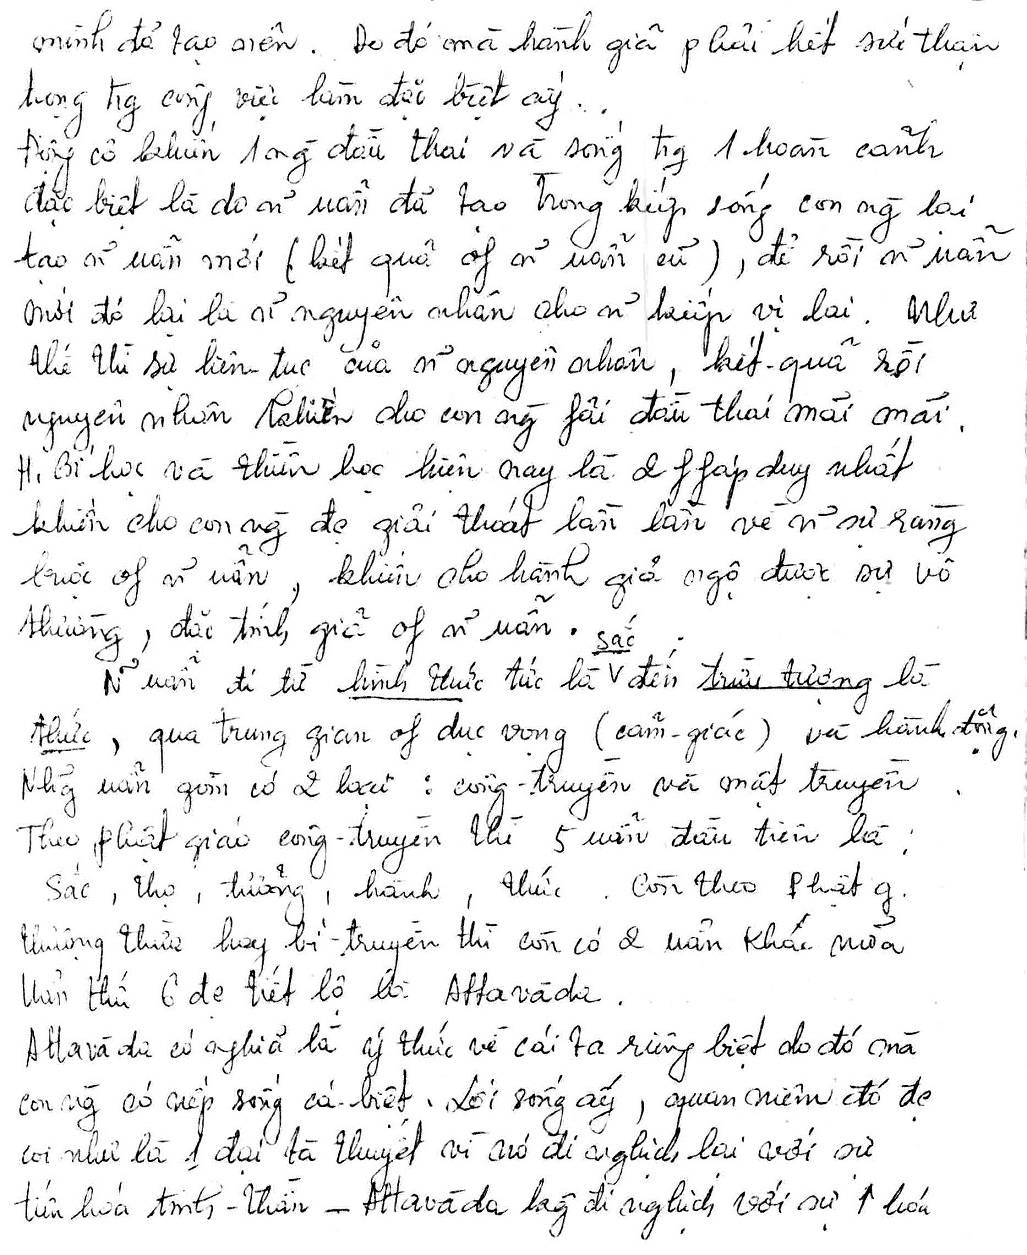 mình đã tạo nên. Do đó mà hành giả phải hết sức thận
trọng trg công việc làm đặc biệt ấy..
Động cơ khiến 1 ng đầu thai và sống trg 1 hoàn cảnh
đặc biệt là do n~ uẩn đã tạo trong kiếp sống con ng lại
tạo n~ uẩn mới (kết quả of n~ uẩn cũ), để rồi n~ uẩn
mới đó lại là n~ nguyên nhân cho n~ kiếp vị lai. Như
thế thì sự liên-tục của n~ nguyên nhân, kết-quả rồi
nguyên nhân khiến cho con ng fải đầu thai mãi mãi.
H. Bí học và thiền học hiện nay là 2 f fáp duy nhất
khiến cho con ng đc giải thoát lần lần về n~ sự ràng
buộc of n~ uẩn, khiến cho hành giả ngộ được sự vô
thường, đặc tính giả of n~ uẩn.
N~ uẩn đi từ hình thức tức là sắc đến trừu tượng là
thức, qua trung gian of dục vọng (cảm-giác) và hành động.
Nhg uẩn gồm có 2 loại : công-truyền và mật truyền.
Theo phật giáo công-truyền thì 5 uẩn đầu tiên là :
Sắc, thọ, tưởng, hành, thức. Còn theo Phật g.
thượng thừa hay bí-truyền thì còn có 2 uẩn khác nữa
Uẩn thứ 6 đc tiết lộ là Attavāda.
Attavāda có nghĩa là ý thức về cái ta riêng biệt do đó mà
con ng có nếp sống cá-biệt. Lối sống ấy, quan niệm đó đc
coi như là 1 đại tà thuyết vì nó đi nghịch lại với sự
tiến hóa tinh-thần - Attavāda kg đi nghịch với sự ↑ hóa